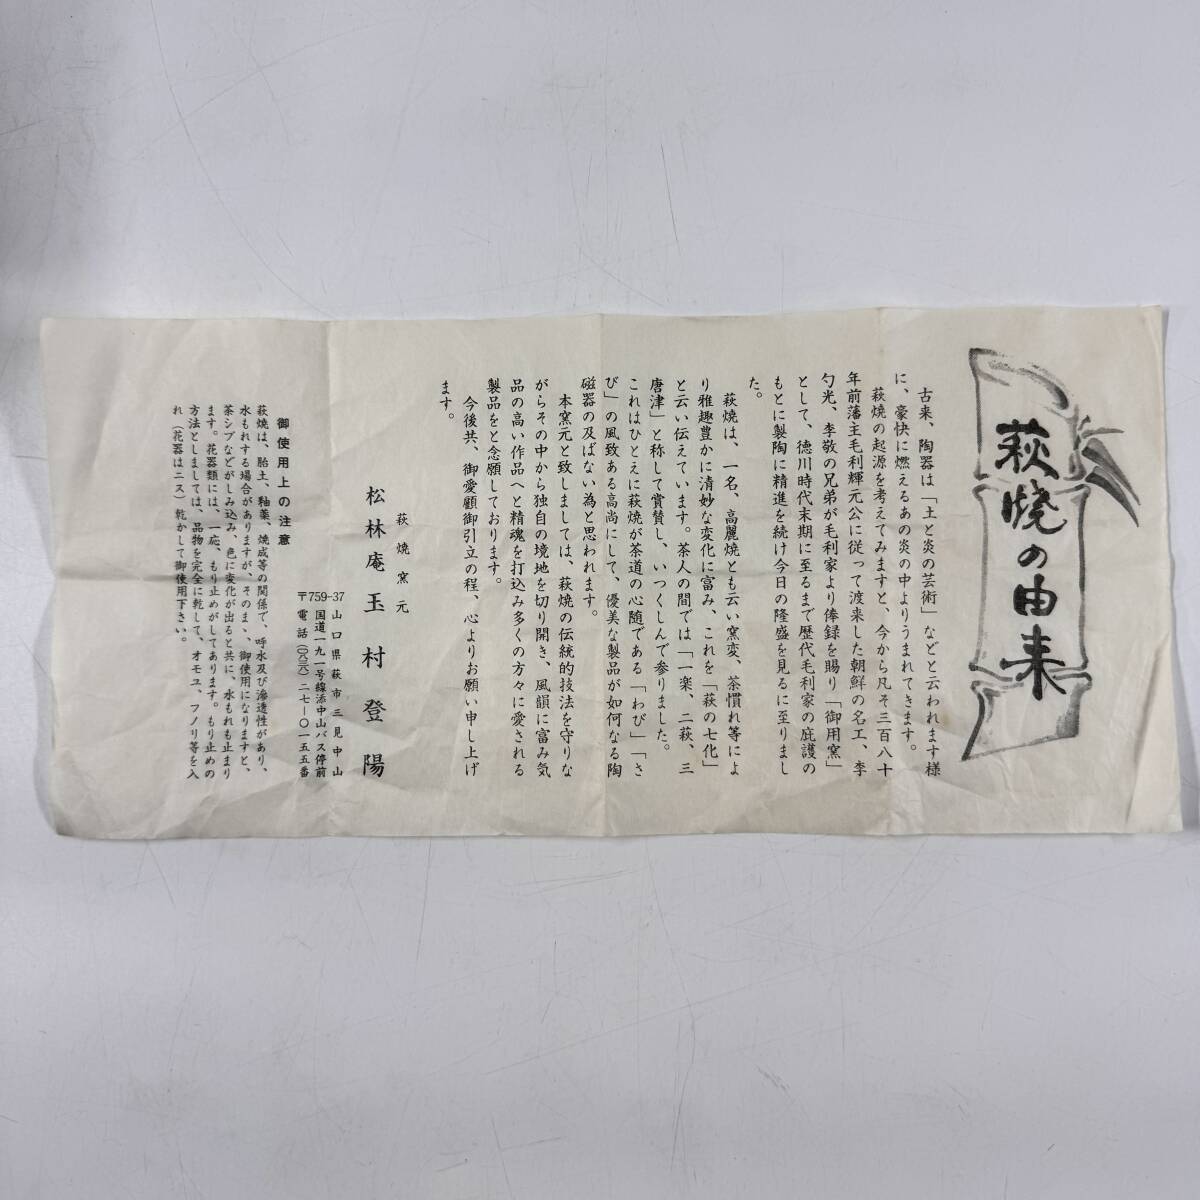 萩焼の由来
古来、陶器は「土と炎の芸術」などと云われます様
に、豪快に燃えるあの炎の中よりうまれてきます。
萩焼の起源を考えてみますと、今から凡そ三百八十
年前藩主毛利輝元公に従って渡来した朝鮮の名工、李
勺光、李敬の兄弟が毛利家より俸録を賜り「御用窯」
として、徳川時代末期に至るまで歴代毛利家の庇護の
もとに製陶に精進を続け今日の隆盛を見るに至りまし
た。
萩焼は、一名、高麗焼とも云い窯変、茶慣れ等によ
り雅趣豊かに清妙な変化に富み、これを「萩の七化」
と云い伝えています。茶人の間では「一楽、二萩、三
唐津」と称して賞賛し、いつくしんで参りました。
これはひとえに萩焼が茶道の心随である「わび」「さ
び」の風致ある高尚にして、優美な製品が如何なる陶
磁器の及ばない為と思われます。
本窯元と致しましては、萩焼の伝統的技法を守りな
がらその中から独自の境地を切り開き、風韻に富み気
品の高い作品へと精魂を打込み多くの方々に愛される
製品をと念願しております。
今後共、御愛顧御引立の程、心よりお願い申し上げ
ます。
萩焼窯元
松林庵玉村登陽
〒759-37 山口県萩市三見中山
国道一九一号線添中山バス停前
電話(〇八三八)二七−〇一五五番
御使用上の注意
萩焼は、胎土、釉薬、焼成等の関係で、呼水及び滲透性があり、
水もれする場合がありますが、そのまゝ、御使用になりますと、
茶シブなどがしみ込み、色に変化が出ると共に、水もれも止まり
ます。花器類には、一応、もり止めがしてあります。もり止めの
方法としましては、品物を完全に乾して、オモユ、フノリ等を入
れ(花器はニス)乾かして御使用下さい。